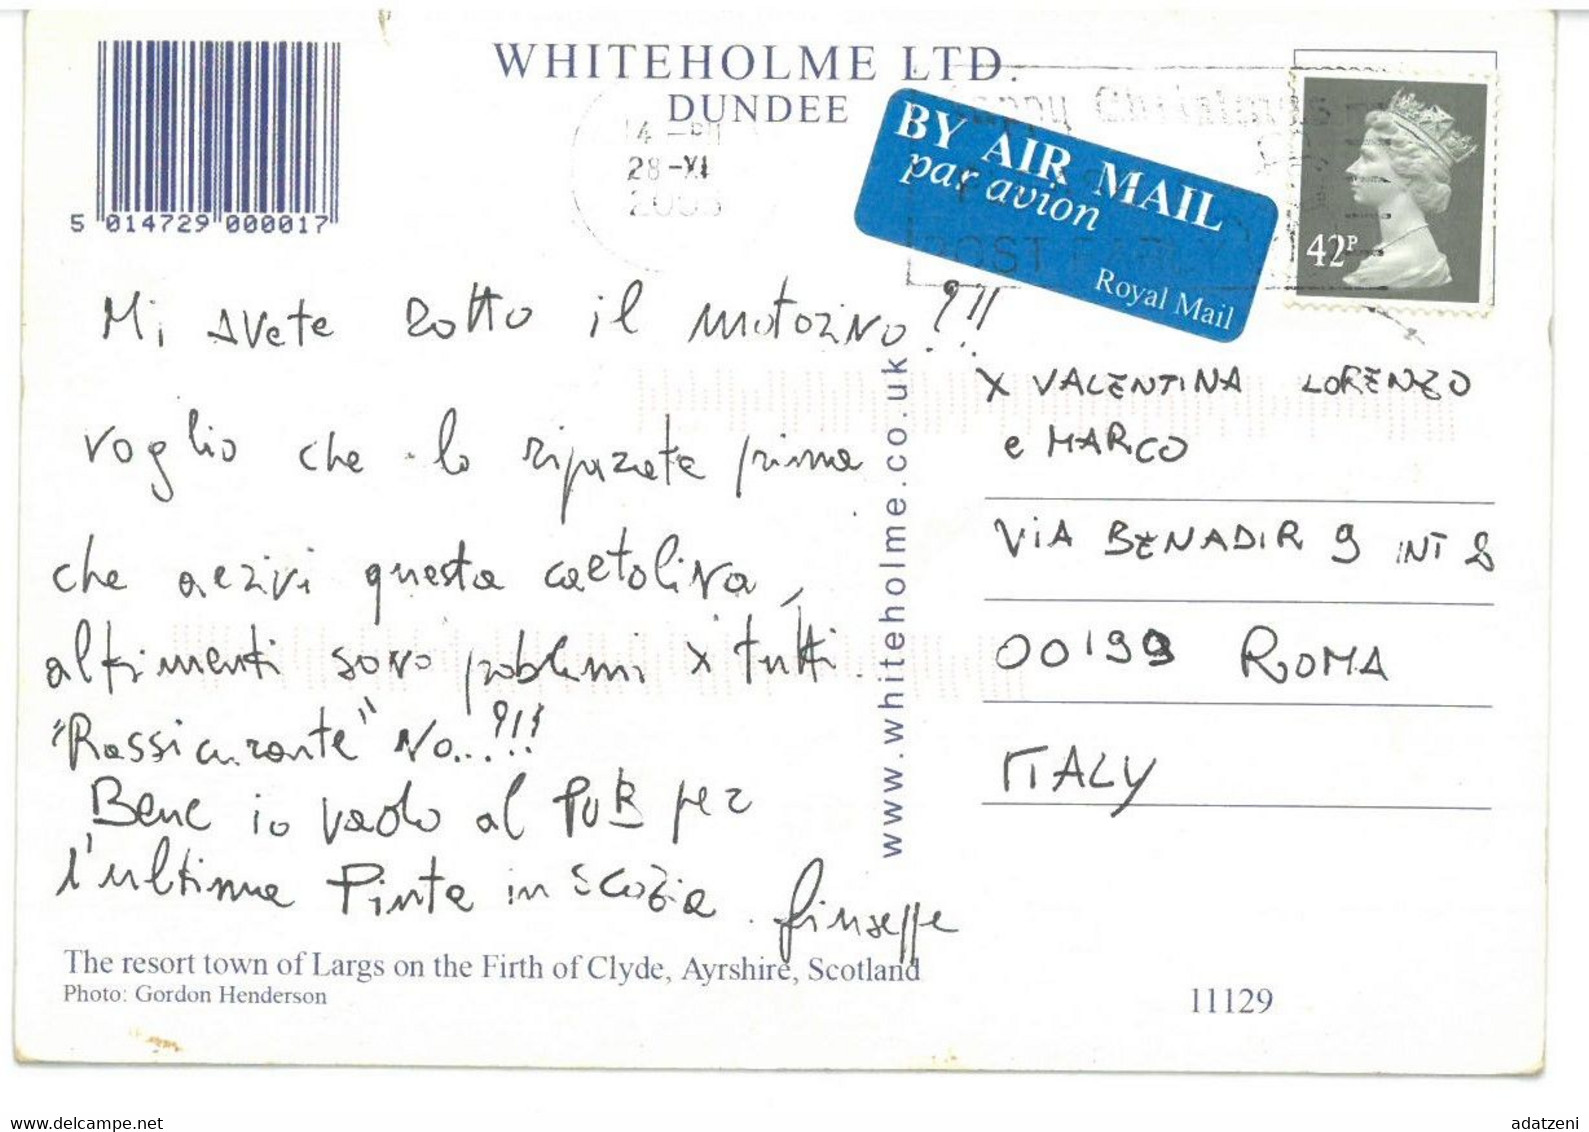 WHITEHOLME LTD.
DUNDEE
5 014729 000017
28-XI
2005
Happy Christmas
POST EARLY
BY AIR MAIL
par avion
Royal Mail
42P
Mi avete rotto il motorino?!!
voglio che lo riparate prima
che arrivi questa cartolina,
altrimenti sono problemi x tutti.
"Rassicurante" No..?!!!
Bene io vado al PUB per
l'ultima Pinta in Scozia. Giuseppe
www.whiteholme.co.uk
X VALENTINA LORENZO
e MARCO
VIA BENADIR 9 INT 8
00199 ROMA
ITALY
The resort town of Largs on the Firth of Clyde, Ayrshire, Scotland
Photo: Gordon Henderson
11129
delcampe.net
adatzeni